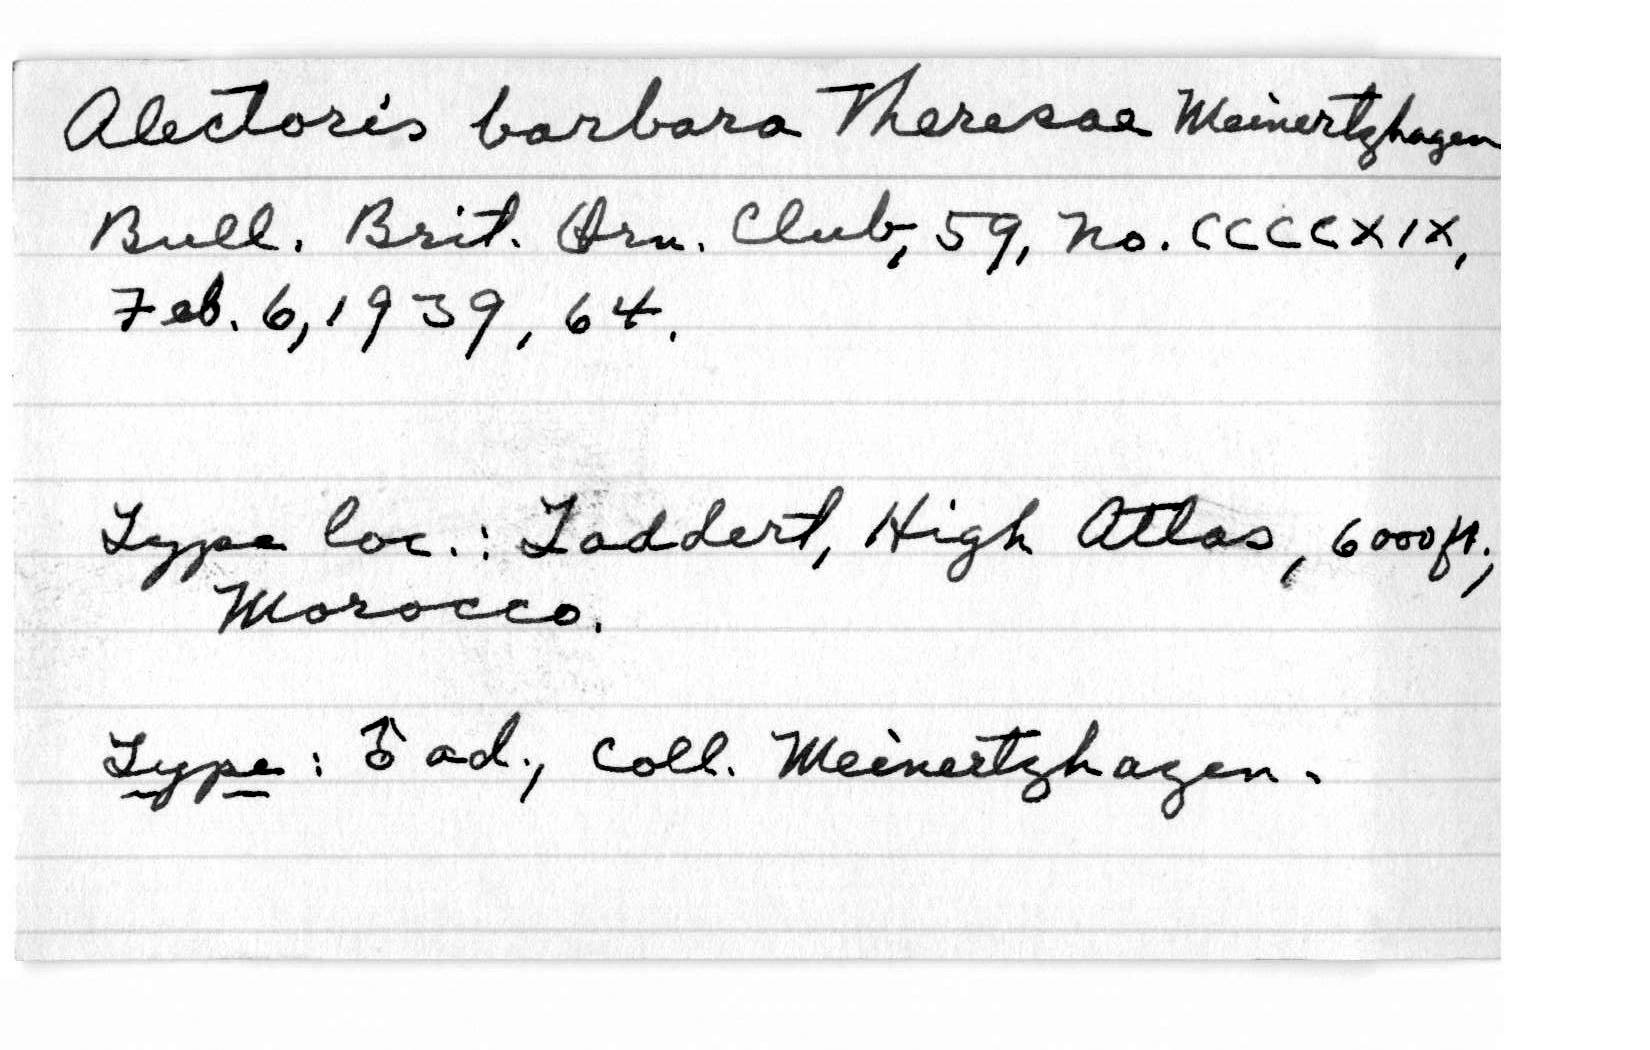 Alectoris barbara Theresae Meinertzhagen
Bull. Brit. Orn. Club, 59, no. CCCCXIX,
Feb. 6, 1939, 64.
Type loc.: Taddert, High Atlas, 6000 ft.,
Morocco.
Type: ♂ ad., coll. Meinertzhagen.